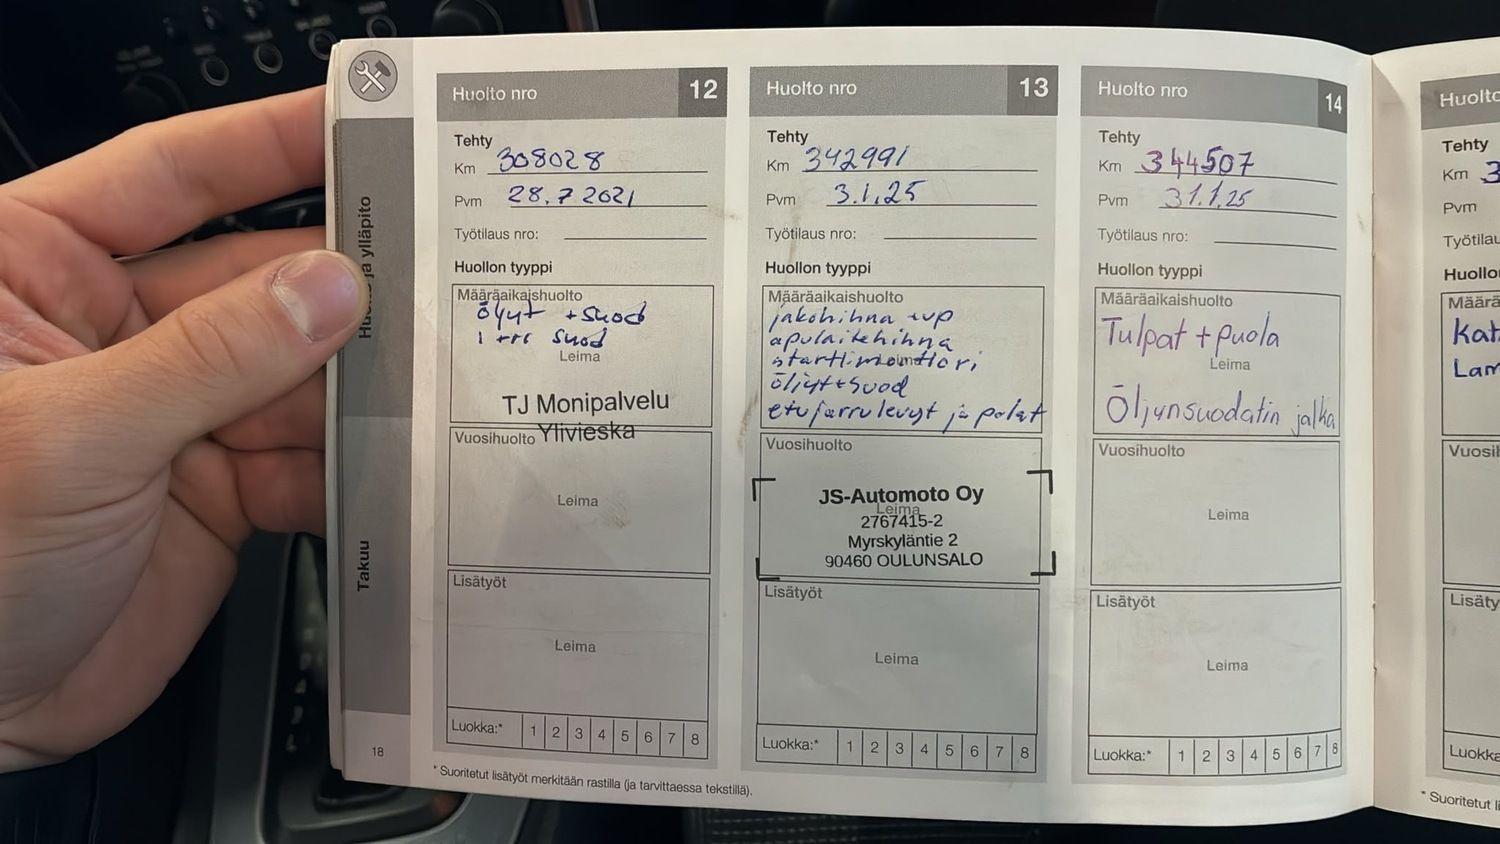 Huolto ja ylläpito
Takuu
18
Huolto nro 12
Tehty
Km 308028
Pvm 28.7 2021
Työtilaus nro:
Huollon tyyppi
Määräaikaishuolto
öljyt + suod
suod
Leima
TJ Monipalvelu
Ylivieska
Vuosihuolto
Leima
Lisätyöt
Leima
Luokka:* 1 2 3 4 5 6 7 8
Huolto nro 13
Tehty
Km 342991
Pvm 3.1.25
Työtilaus nro:
Huollon tyyppi
Määräaikaishuolto
jakohihna + vp
apulaitehihna
starttimoottori
Leima
öljyt + suod
etujarrulevyt ja palat
Vuosihuolto
JS-Automoto Oy
Leima
2767415-2
Myrskyläntie 2
90460 OULUNSALO
Lisätyöt
Leima
Luokka:* 1 2 3 4 5 6 7 8
Huolto nro 14
Tehty
Km 344507
Pvm 31.1.25
Työtilaus nro:
Huollon tyyppi
Määräaikaishuolto
Tulpat + puola
Leima
Öljynsuodatin jalka
Vuosihuolto
Leima
Lisätyöt
Leima
Luokka:* 1 2 3 4 5 6 7 8
* Suoritetut lisätyöt merkitään rastilla (ja tarvittaessa tekstillä).
Huolto
Tehty
Km 3
Pvm
Työtila
Huollo
Määrä
Kat
Lam
Vuosih
Lisäty
Luokka
* Suoritetut li